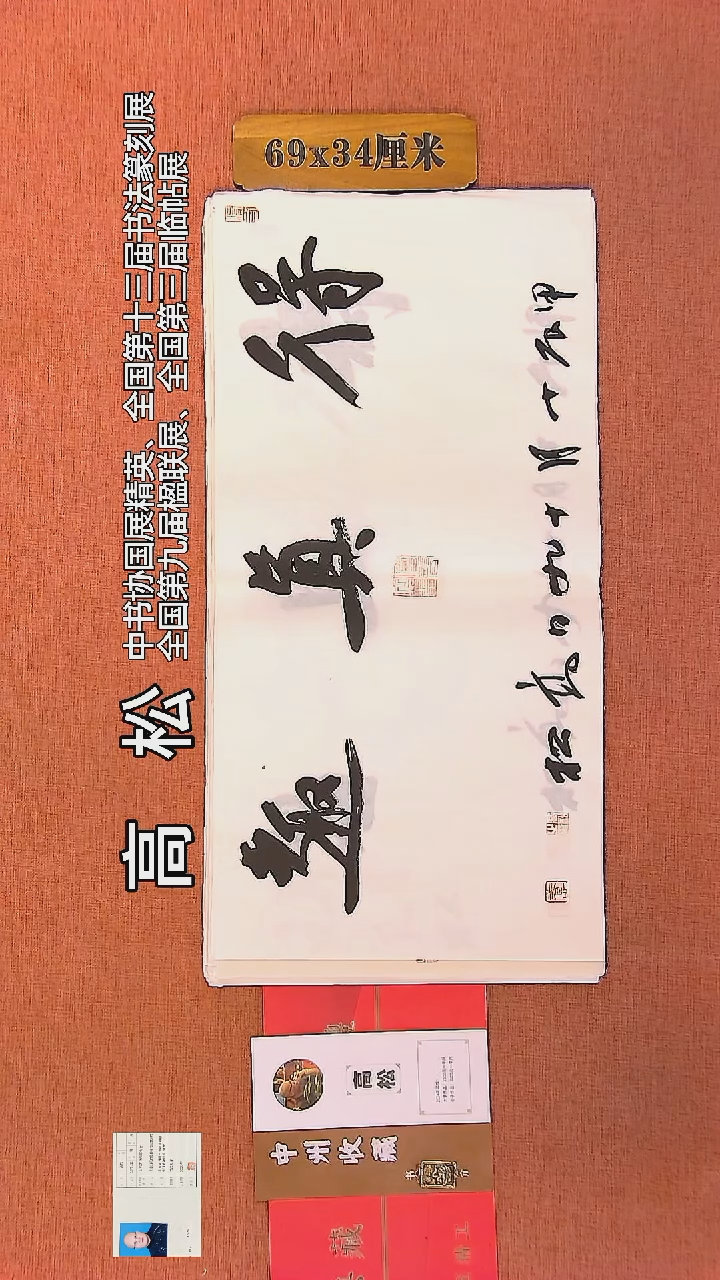 69x34厘米
高松
中书协国展精英、全国第十三届书法篆刻展
全国第九届楹联展、全国第三届临帖展
得真趣
甲辰十月十日高松
高松
中州收藏
藏